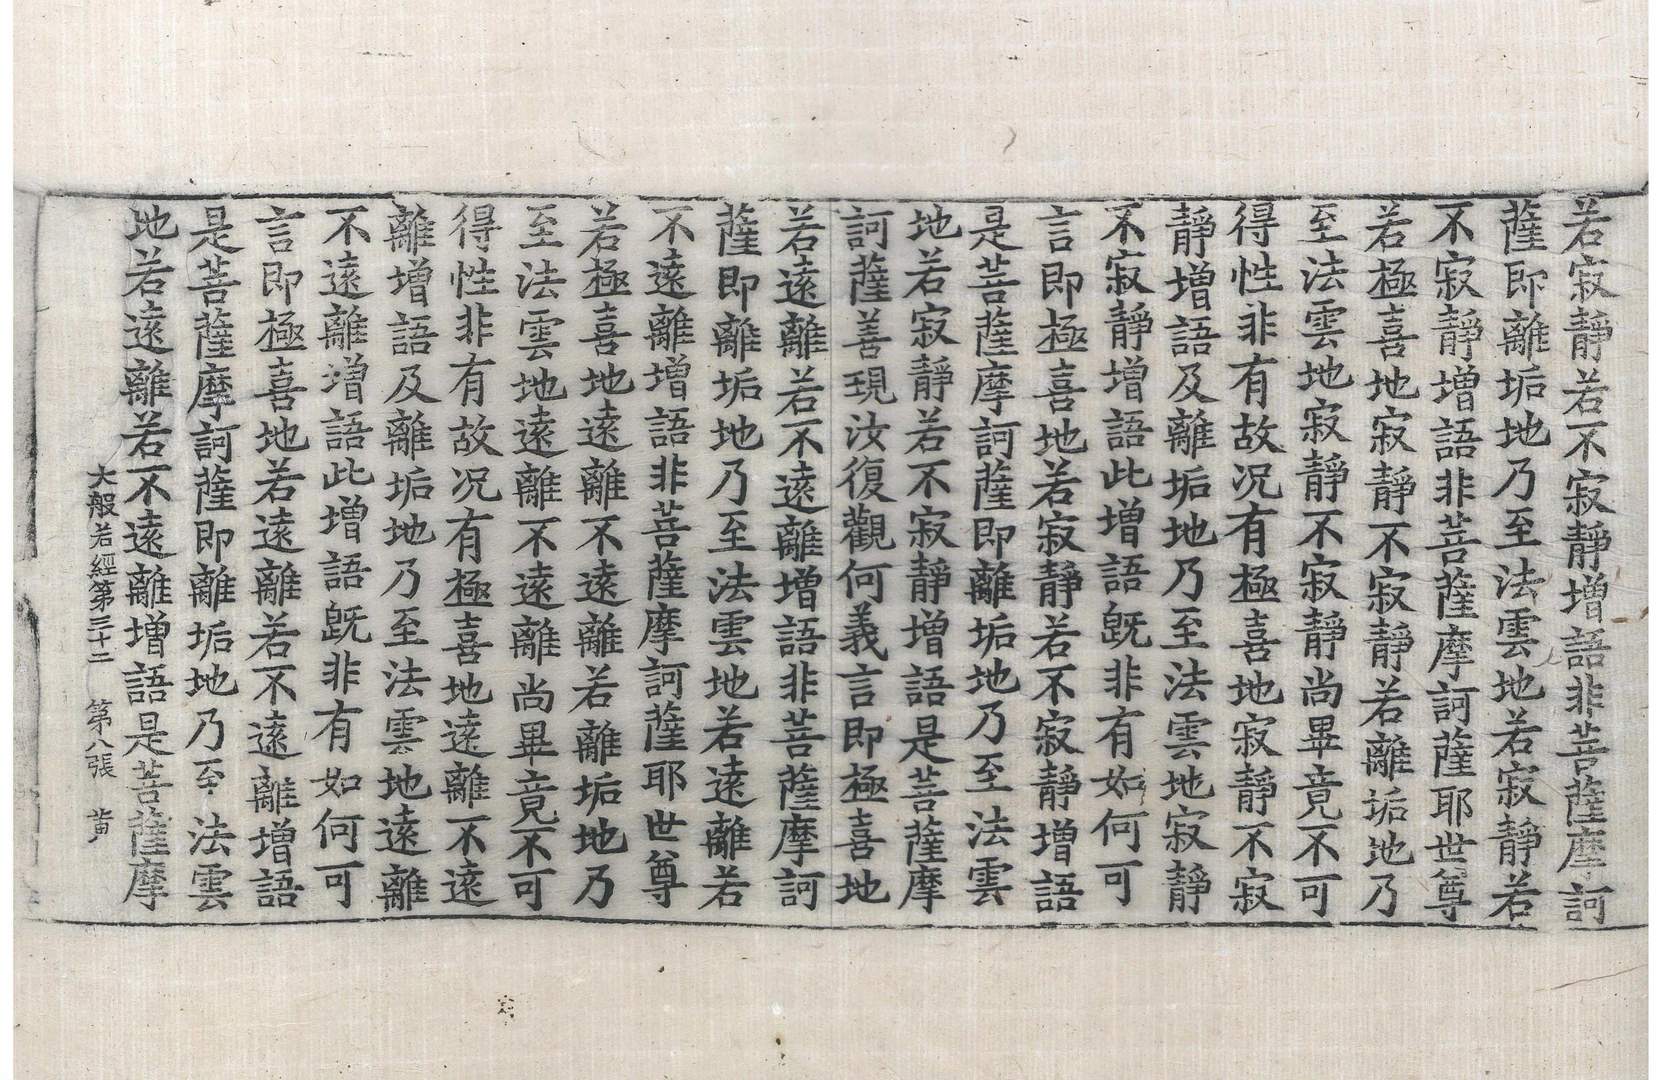 若寂靜若不寂靜增語非菩薩摩訶
薩即離垢地乃至法雲地若寂靜若
不寂靜增語非菩薩摩訶薩耶世尊
若極喜地寂靜不寂靜若離垢地乃
至法雲地寂靜不寂靜尚畢竟不可
得性非有故況有極喜地寂靜不寂
靜增語及離垢地乃至法雲地寂靜
不寂靜增語此增語旣非有如何可
言即極喜地若寂靜若不寂靜增語
是菩薩摩訶薩即離垢地乃至法雲
地若寂靜若不寂靜增語是菩薩摩
訶薩善現汝復觀何義言即極喜地
若遠離若不遠離增語非菩薩摩訶
薩即離垢地乃至法雲地若遠離若
不遠離增語非菩薩摩訶薩耶世尊
若極喜地遠離不遠離若離垢地乃
至法雲地遠離不遠離尚畢竟不可
得性非有故况有極喜地遠離不遠
離增語及離垢地乃至法雲地遠離
不遠離增語此增語旣非有如何可
言即極喜地若遠離若不遠離增語
是菩薩摩訶薩即離垢地乃至法雲
地若遠離若不遠離增語是菩薩摩
大般若經第三十二 第八張 黃